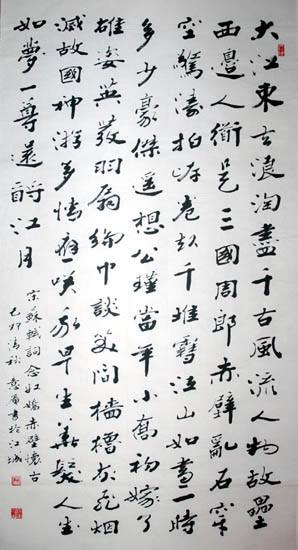 大江東去浪淘盡千古風流人物故壘
西邊人衜是三國周郎赤壁亂石穿
空驚濤拍岸卷起千堆雪江山如畫一時
多少豪傑遥想公瑾當年小喬初嫁了
雄姿英發羽扇綸巾談笑間檣櫓灰飛烟
滅故國神游多情應咲我早生華髮人生
如夢一尊還酹江月
宋蘇軾詞念奴嬌赤壁懷古
己卯清秋書於江城